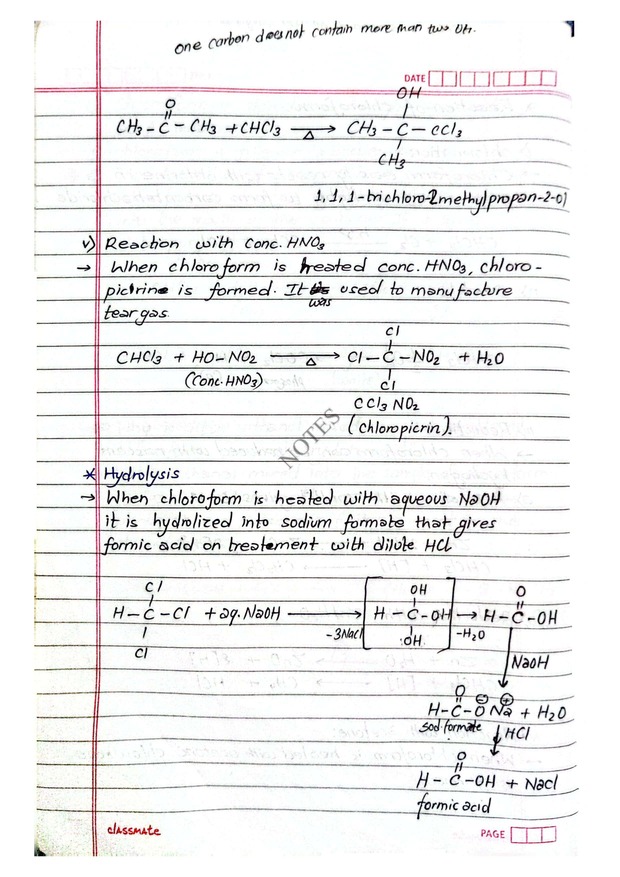 one carbon does not contain more than two OH.
DATE
O OH
CH3 - C - CH3 + CHCl3 → CH3 - C - CCl3
Δ
CH3
1,1,1-trichloro-2methylpropan-2-ol
v) Reaction with conc. HNO3
→ When chloroform is heated conc. HNO3, chloro-
pictrine is formed. It was used to manufacture
tear gas.
Cl
CHCl3 + HO-NO2 → Cl - C - NO2 + H2O
Δ
(Conc. HNO3) Cl
CCl3 NO2
(chloropicrin).
NOTES
* Hydrolysis
→ When chloroform is heated with aqueous NaOH
it is hydrolized into sodium formate that gives
formic acid on treatement with dilute HCl
Cl OH O
H - C - Cl + aq. NaOH → [H - C - OH] → H - C - OH
-3NaCl -H2O
Cl OH
↓ NaOH
O
H - C - O⊖ Na⊕ + H2O
sod. formate ↓ HCl
O
H - C - OH + NaCl
formic acid
classmate
PAGE